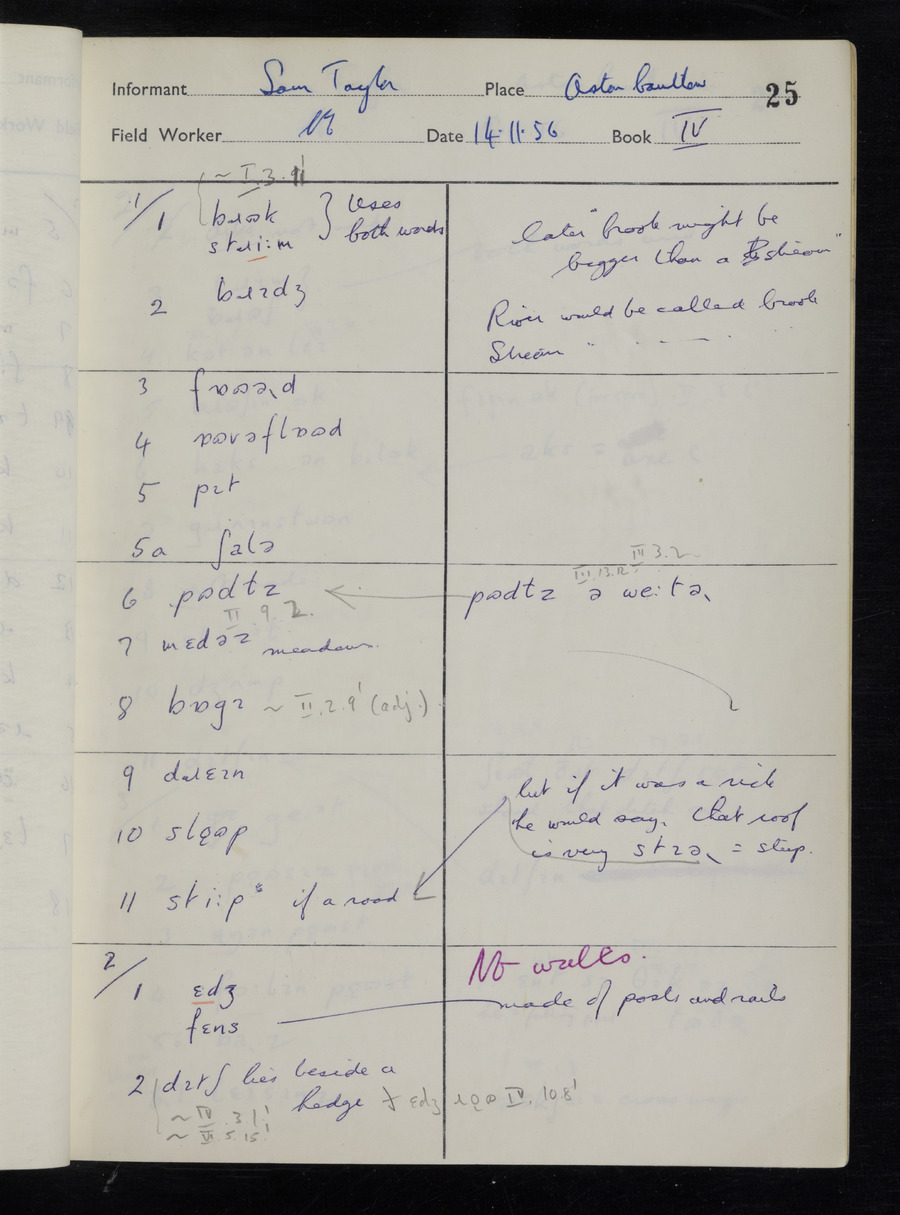 Informant Sam Taylor Place Aston Cantlow 25
Field Worker Date 14·11·56 Book IV
~ I.3.9'
1/1 bɹʊk } Uses
stɹi:m both words
later "brook might be
bigger than a stream"
2 bɹɪdʒ
River would be called brook
Stream " . - . .
3
4
5 pɪt
5a ʃalə
6 pɒdɫz ← pɒdɫz ə we:tə
III.13.12 III 3.2
II 9.2.
7 mɛdəz meadows.
8 bɒgɪ ~ II.2.9' (adj.)
9 dɹɛɪn
10
11 sti:p if a road
but if it was a rick
he would say. that roof
is very = steep.
2/1 ɛdʒ
fɛns
No walls.
made of posts and rails
2 dɪtʃ lies beside a
hedge IV.10.8'
~ IV.3.1'
~ VI.5.15!